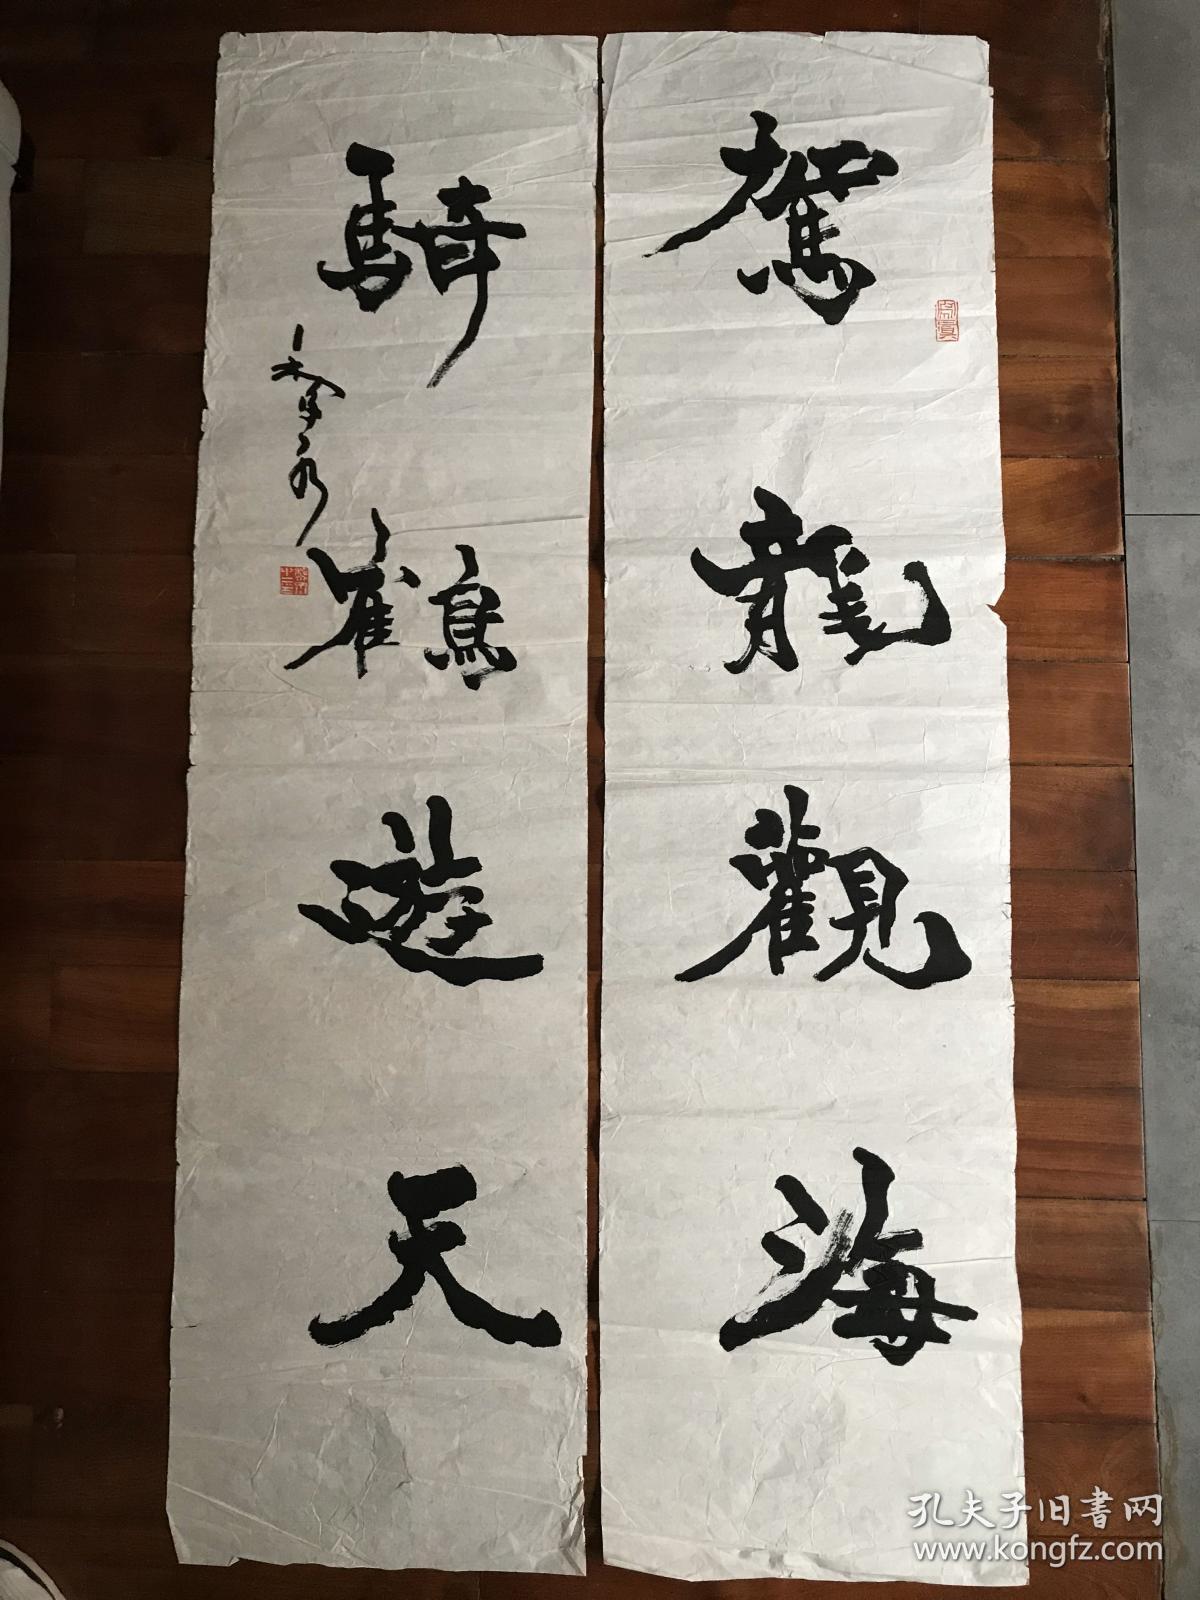 駕龍觀海
騎鶴遊天
孔夫子旧書网
www.kongfz.com